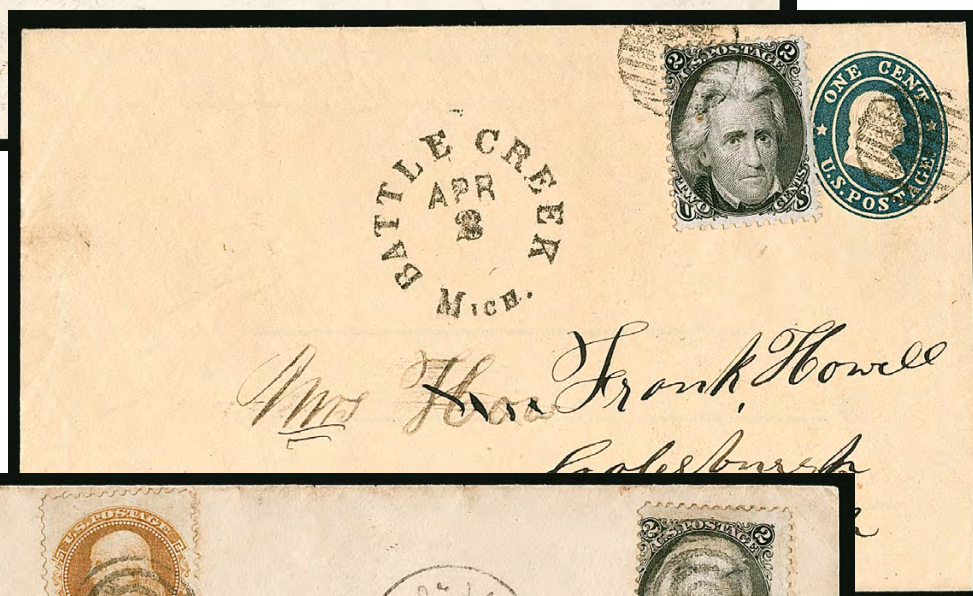 2 U.S. POSTAGE 2
TWO CENTS
ONE CENT
U.S. POSTAGE
BATTLE CREEK
APR
MICH.
Mrs Frank Howell
Colesburgh
U.S. POSTAGE
2 U.S. POSTAGE 2